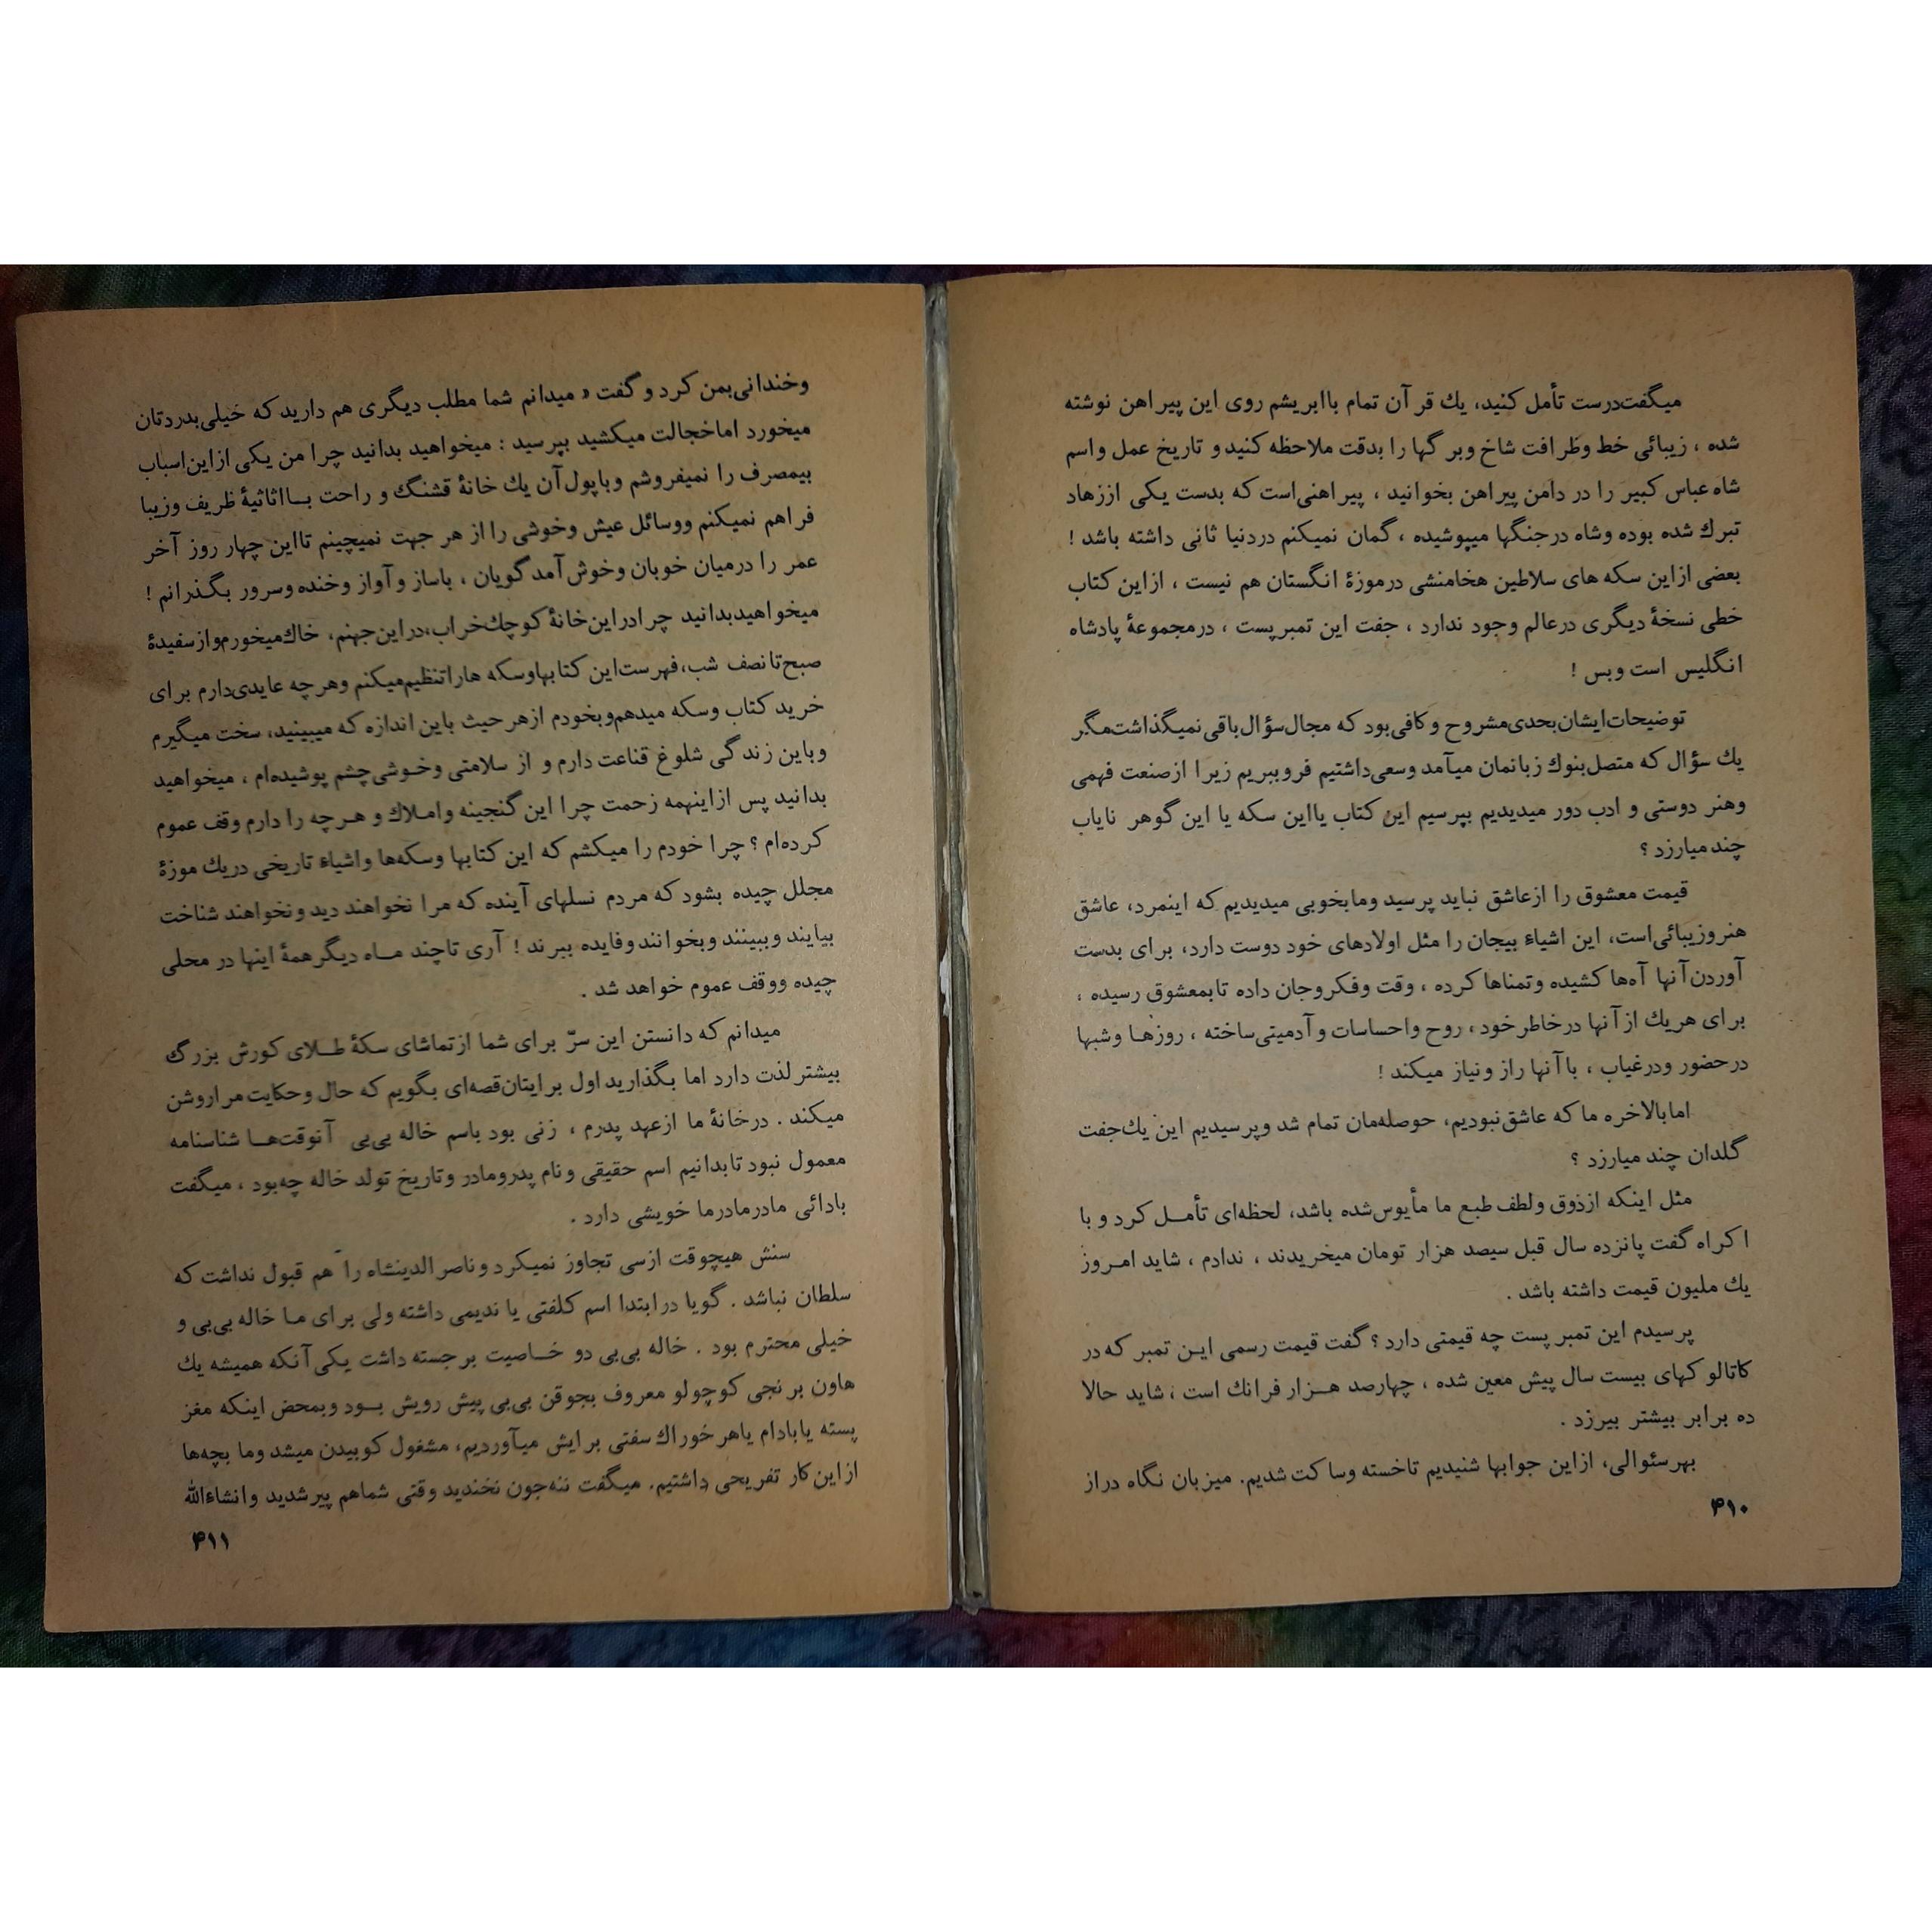 میگفت درست تأمل کنید، یك قرآن تمام باابریشم روی این پیراهن نوشته
شده ، زیبائی خط وظرافت شاخ وبرگها را بدقت ملاحظه کنید و تاریخ عمل واسم
شاه عباس کبیر را در دامن پیراهن بخوانید ، پیراهنی است که بدست یکی اززهاد
تبرك شده بوده وشاه درجنگها میپوشیده ، گمان نمیکنم دردنیا ثانی داشته باشد !
بعضی ازاین سکه های سلاطین هخامنشی درموزهٔ انگستان هم نیست ، ازاین کتاب
خطی نسخهٔ دیگری درعالم وجود ندارد ، جفت این تمبرپست ، درمجموعهٔ پادشاه
انگلیس است وبس !
توضیحات ایشان بحدی مشروح وکافی بود که مجال سؤال باقی نمیگذاشت مگر
یك سؤال که متصل بنوك زبانمان میآمد وسعی داشتیم فروببریم زیرا ازصنعت فهمی
وهنر دوستی و ادب دور میدیدیم بپرسیم این کتاب یااین سکه یا این گوهر نایاب
چند میارزد ؟
قیمت معشوق را ازعاشق نباید پرسید ومابخوبی میدیدیم که اینمرد، عاشق
هنروزیبائی است، این اشیاء بیجان را مثل اولادهای خود دوست دارد، برای بدست
آوردن آنها آه‌ها کشیده وتمناها کرده ، وقت وفکروجان داده تابمعشوق رسیده ،
برای هریك ازآنها درخاطرخود ، روح واحساسات وآدمیتی ساخته ، روزها وشبها
درحضور ودرغیاب ، باآنها راز ونیاز میکند !
امابالاخره ما که عاشق نبودیم، حوصله‌مان تمام شد وپرسیدیم این یك جفت
گلدان چند میارزد ؟
مثل اینکه ازذوق ولطف طبع ما مأیوس شده باشد، لحظه‌ای تأمل کرد و با
اکراه گفت پانزده سال قبل سیصد هزار تومان میخریدند ، ندادم ، شاید امروز
یك ملیون قیمت داشته باشد .
پرسیدم این تمبر پست چه قیمتی دارد ؟ گفت قیمت رسمی این تمبر که در
کاتالوکهای بیست سال پیش معین شده ، چهارصد هزار فرانك است ، شاید حالا
ده برابر بیشتر بیرزد .
بهرسئوالی، ازاین جوابها شنیدیم تاخسته وساکت شدیم. میزبان نگاه دراز
۴۱۰
وخندانی بمن کرد و گفت « میدانم شما مطلب دیگری هم دارید که خیلی بدردتان
میخورد اماخجالت میکشید بپرسید : میخواهید بدانید چرا من یکی ازاین اسباب
بیمصرف را نمیفروشم وباپول آن یك خانهٔ قشنگ و راحت بااثاثیهٔ ظریف وزیبا
فراهم نمیکنم ووسائل عیش وخوشی را از هر جهت نمیچینم تااین چهار روز آخر
عمر را درمیان خوبان وخوش آمدگویان ، باساز وآواز وخنده وسرور بگذرانم !
میخواهید بدانید چرا دراین خانهٔ کوچك خراب، دراین جهنم، خاك میخورم واز سفیدهٔ
صبح تا نصف شب، فهرست این کتابها وسکه هارا تنظیم میکنم وهرچه عایدی دارم برای
خرید کتاب وسکه میدهم وبخودم ازهرحیث باین اندازه که میبینید، سخت میگیرم
وباین زندگی شلوغ قناعت دارم و از سلامتی وخوشی چشم پوشیده‌ام ، میخواهید
بدانید پس ازاینهمه زحمت چرا این گنجینه واملاك و هرچه را دارم وقف عموم
کرده‌ام ؟ چرا خودم را میکشم که این کتابها وسکه‌ها واشیاء تاریخی دریك موزهٔ
مجلل چیده بشود که مردم نسلهای آینده که مرا نخواهند دید ونخواهند شناخت
بیایند وببینند وبخوانند وفایده ببرند ! آری تاچند ماه دیگر همهٔ اینها در محلی
چیده ووقف عموم خواهد شد .
میدانم که دانستن این سرّ برای شما ازتماشای سکهٔ طلای کورش بزرگ
بیشتر لذت دارد اما بگذارید اول برایتان قصه‌ای بگویم که حال وحکایت مراروشن
میکند . درخانهٔ ما ازعهد پدرم ، زنی بود باسم خاله بی‌بی آنوقت‌ها شناسنامه
معمول نبود تابدانیم اسم حقیقی ونام پدرومادر وتاریخ تولد خاله چه‌بود ، میگفت
بادائی مادرمادرما خویشی دارد .
سنش هیچوقت ازسی تجاوز نمیکرد وناصرالدینشاه را هم قبول نداشت که
سلطان نباشد . گویا درابتدا اسم کلفتی یا ندیمی داشته ولی برای ما خاله بی‌بی و
خیلی محترم بود . خاله بی‌بی دو خاصیت برجسته داشت یکی آنکه همیشه یك
هاون برنجی کوچولو معروف بجوقن بی‌بی پیش رویش بود وبمحض اینکه مغز
پسته یابادام یاهرخوراك سفتی برایش میآوردیم، مشغول کوبیدن میشد وما بچه‌ها
ازاین کار تفریحی داشتیم. میگفت ننه‌جون نخندید وقتی شماهم پیرشدید وانشاءالله
۴۱۱